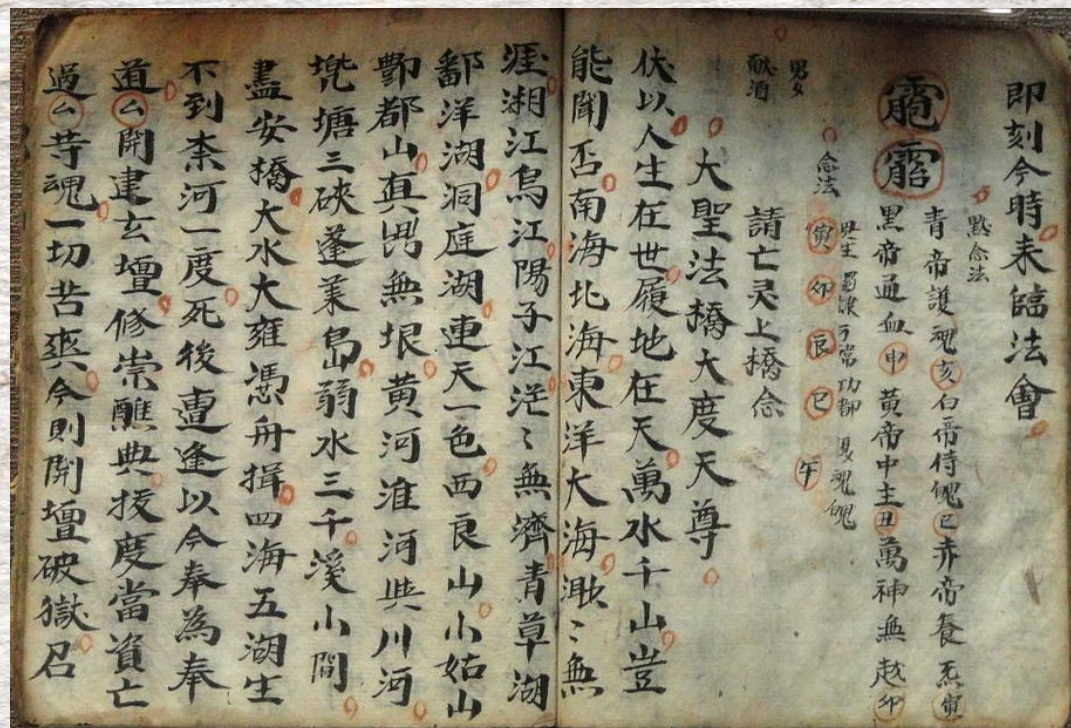 即刻今時来臨法會
㸃念法
青帝護魂亥白帝侍魄巳赤帝養炁寅
黑帝通血申黃帝中主丑萬神無越卯
念法
寅卯辰巳午
男女
献酒
請亡灵上橋念
大聖法橋大度天尊
伏以人生在世履地在天萬水千山豈
能聞否南海北海東洋大海渺〻無
涯湘江烏江陽子江茫〻無濟青草湖
鄱洋湖洞庭湖連天一色西良山小姑山
酆都山真岀無垠黄河淮河與川河
塘三硤蓬莱島弱水三千溪小間
盡安橋大水大雍馮舟揖四海五湖生
不到柰河一度死後遭逢以今奉為奉
道厶開建玄壇修崇醮典拔度當資亡
過厶等魂一切苦爽今則開壇破獄召